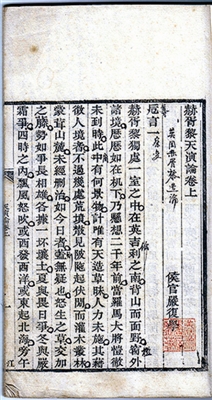 赫胥黎天演論卷上
英國赫胥黎造論
侯官嚴復學
巵言一
赫胥黎獨處一室之中在英吉利之南背山而面野窗外
諸境歷歷如在机下乃懸想二千年前當羅馬大將愷徹
未到時此中有何景物計唯有天造草昧人力未施其藉
徵人境者不過幾處荒墳散見陂陀起伏間而灌木叢林
蒙茸山麓未經刪治如今日者無疑也怒生之草交加
之藤勢如爭長相雄各據一坏壤土夏與畏日爭冬與嚴
霜爭四時之內飄風怒吹或西發西洋或東起北海旁午